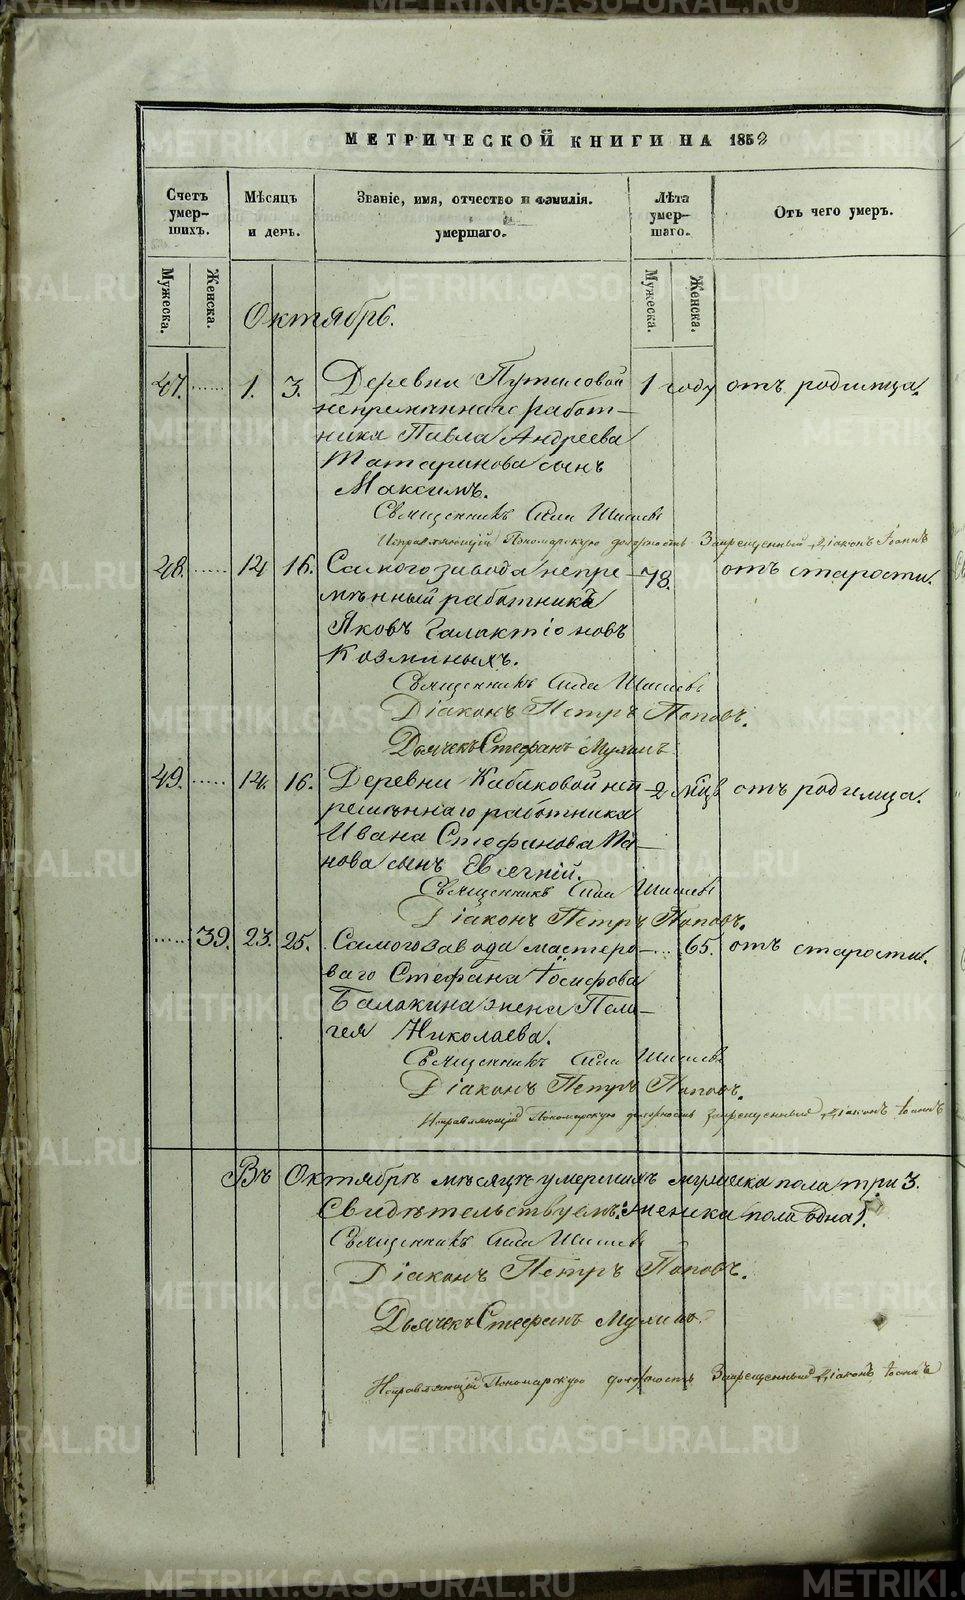 МЕТРИЧЕСКОЙ КНИГИ НА 1852
Счетъ умершихъ.
Мѣсяцъ и день.
Званіе, имя, отчество и фамилія умершаго.
Лѣта умершаго.
Отъ чего умеръ.
Мужеска.
Женска.
Мужеска.
Женска.
Октябрь.
47. ...... 1. 3. Деревни Путиловой 1 году отъ родимца.
непремѣннаго работ-
ника Павла Андреева
Татаринова сынъ
Максимъ.
Священникъ
Исправляющій Пономарскую должность Запрещенный Діаконъ Іоаннъ
48. ...... 14 16. Самого завода непре- 78. отъ старости.
мѣнный работникъ
Яковъ Галактіоновъ
Козминыхъ.
Священникъ
Діаконъ Петръ Поповъ.
Дьячекъ Стефанъ Мухинъ
49. ...... 14. 16. Деревни Кабаковой неп- 2 мѣцв отъ родимца.
ремѣннаго работника
Ивана Стефанова Па-
нова сынъ Евгеній.
Священникъ
Діаконъ Петръ Поповъ.
...... 39. 23. 25. Самого завода мастеро- ... 65. отъ старости.
ваго Стефана Іосифова
Балакина жена Пела-
гея Николаева.
Священникъ
Діаконъ Петръ Поповъ.
Исправляющій Пономарскую должность запрещенный Діаконъ Іоаннъ
Въ Октябрѣ мѣсяцѣ умершихъ мужеска пола три 3.
Свидѣтельствуемъ. женска пола одна 1.
Священникъ
Діаконъ Петръ Поповъ.
Дьячекъ Стефанъ Мухинъ
Исправляющій Пономарскую должность Запрещенный Діаконъ Іоаннъ
METRIKI.GASO-URAL.RU